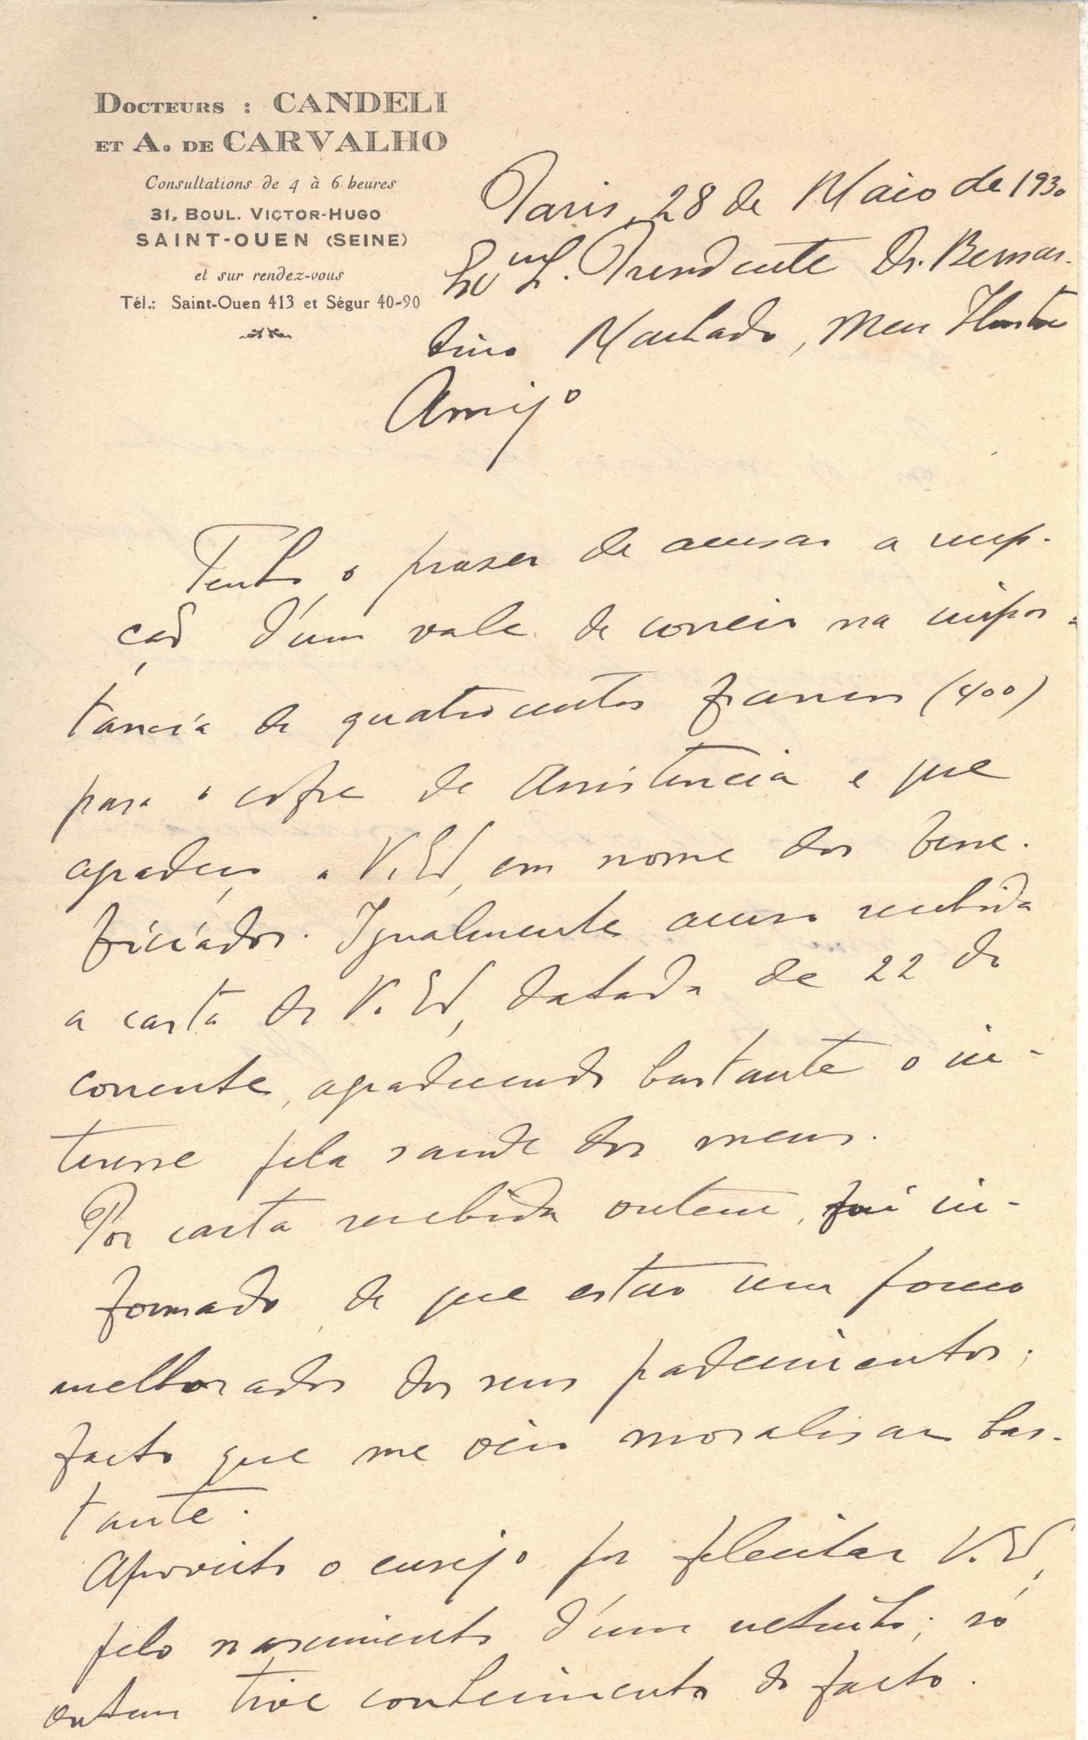 DOCTEURS : CANDELI
ET A. DE CARVALHO
Consultations de 4 à 6 heures
31, BOUL. VICTOR-HUGO
SAINT-OUEN (SEINE)
et sur rendez-vous
Tél.: Saint-Ouen 413 et Ségur 40-90
Paris, 28 de Maio de 1930
Presidente Dr. Bernar-
dino Machado, Meu Ilustre
Amigo
Tenho o praser de acusar a recep-
ção d'um vale de correio na impor-
tancia de quatrocentos francos (400)
para o cofre de Assistencia e que
agradeço a V. Ex.ª, em nome dos bene-
ficiados. Igualmente acuso recebida
a carta de V. Ex.ª, datada de 22 do
corrente, agradecendo bastante o in-
teresse pela saude dos meus.
Por carta recebida ontem, fui in-
formado, de que estão um pouco
melhorados dos seus padecimentos;
facto que me veio moralisar bas-
tante.
Aproveito o ensejo por felicitar V. Ex.ª,
pelo nascimento d'um netinho; só
ontem tive conhecimento do facto.